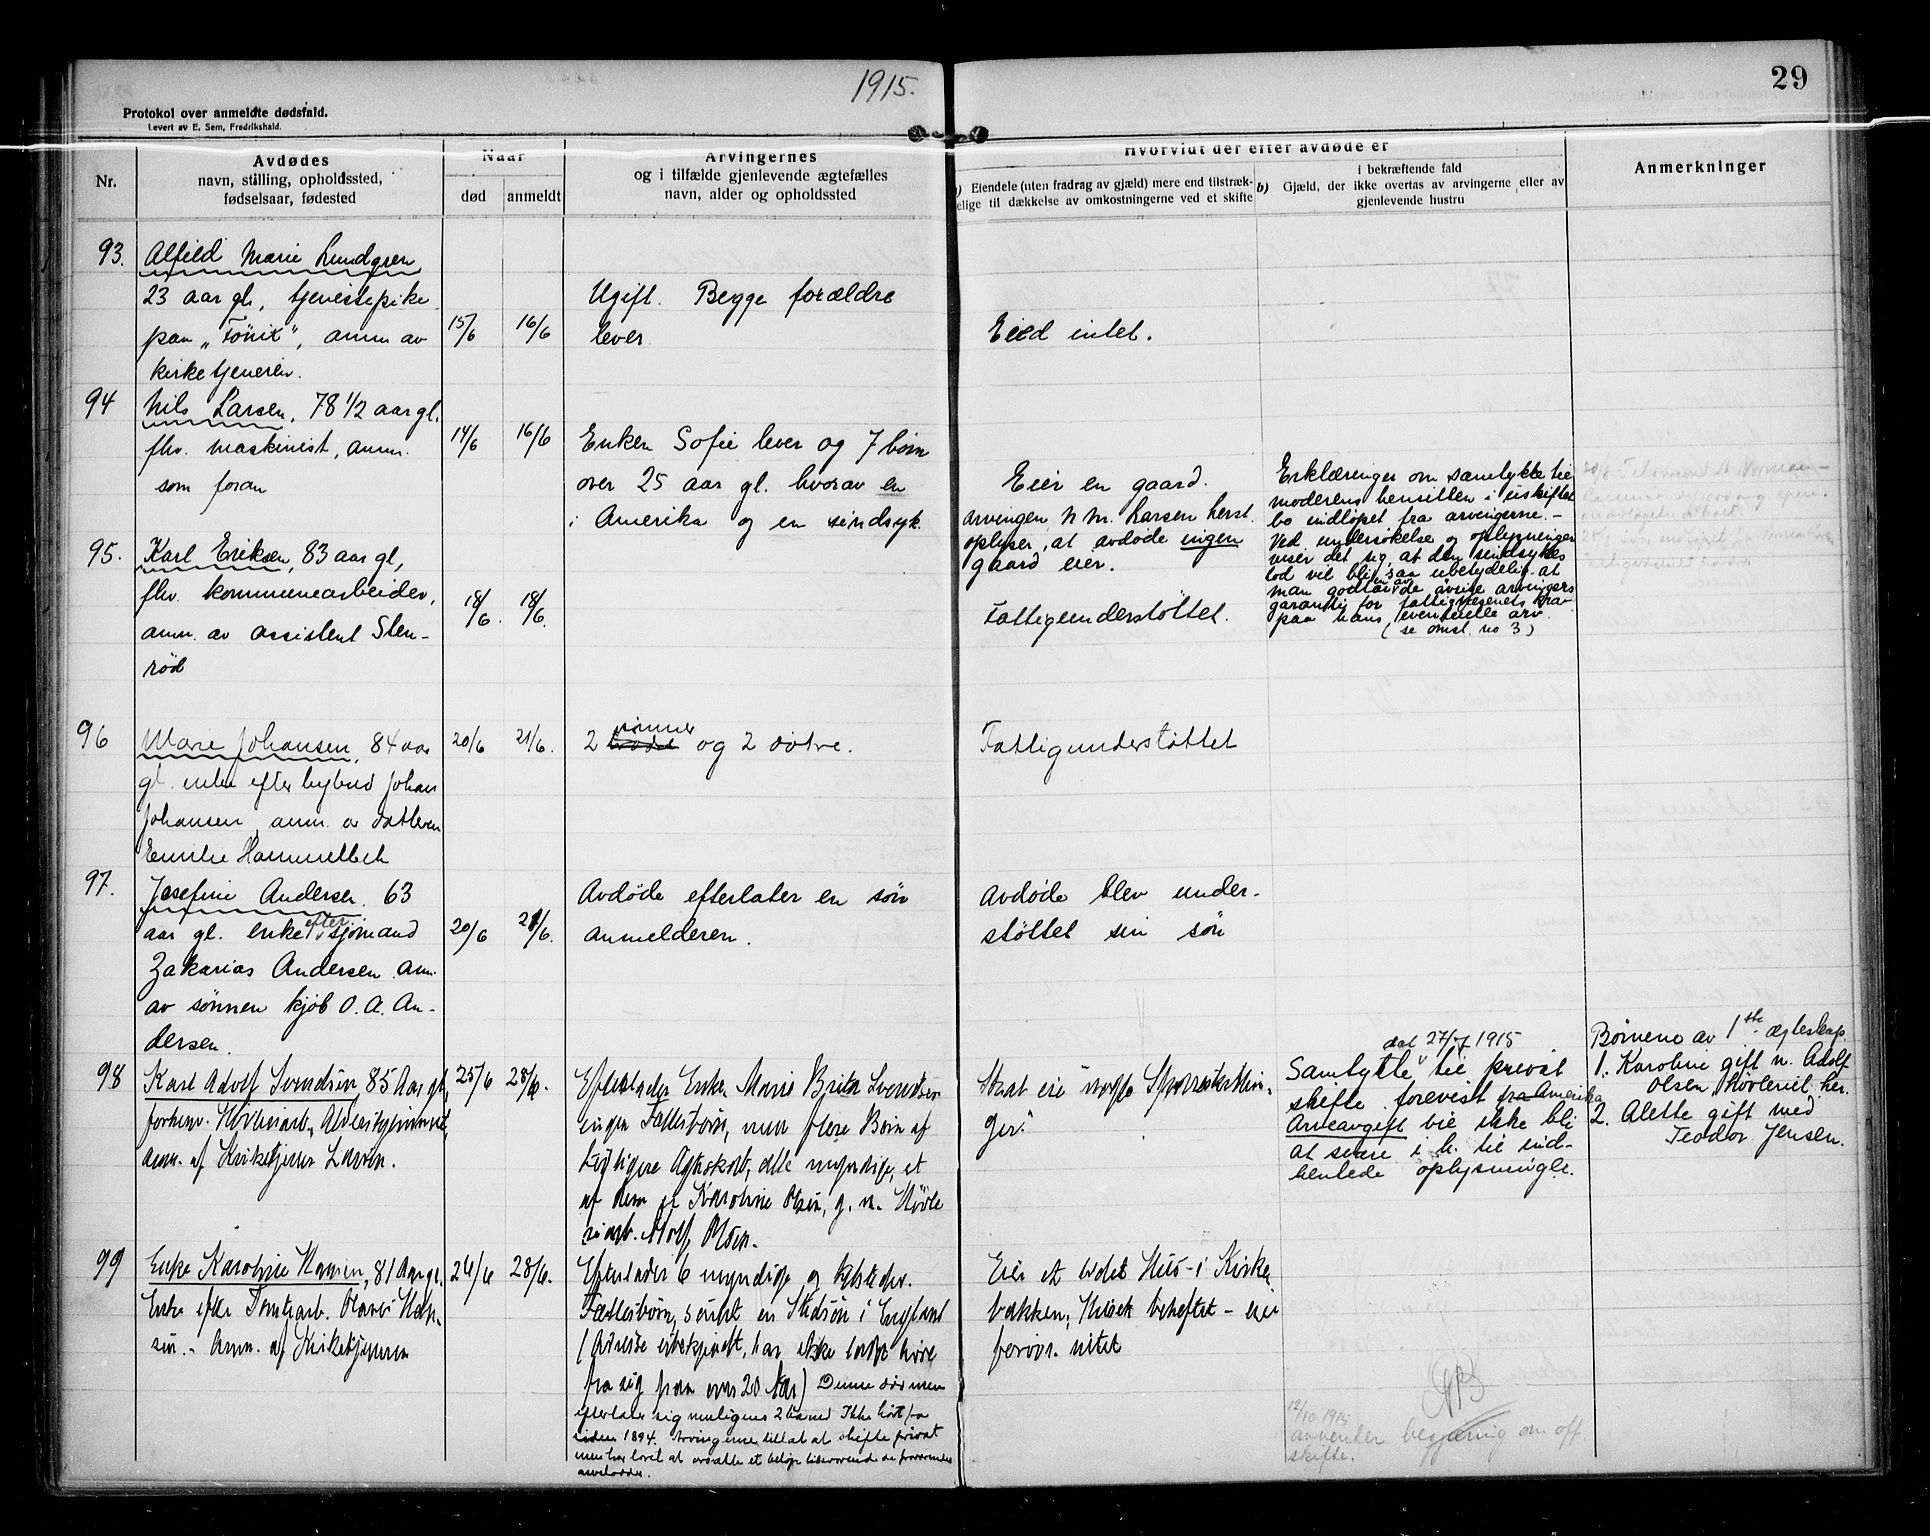 1915.
29
Protokol over anmeldte dødsfald.
Levert av E. Sem, Fredrikshald.
Nr.
Avdødes
navn, stilling, opholdssted,
fødselsaar, fødested
Naar
død
anmeldt
Arvingernes
og i tilfælde gjenlevende ægtefælles
navn, alder og opholdssted
Hvorvidt der efter avdøde er
a) Eiendele (uten fradrag av gjæld) mere end tilstræk-
kelige til dækkelse av omkostningerne ved et skifte
i bekræftende fald
b) Gjæld, der ikke overtas av arvingerne eller av
gjenlevende hustru
Anmerkninger
93.
Alfild Marie Lundgren
23 aar gl, tjenestepike
paa "Fönix", anm av
kirketjeneren.
15/6
16/6
Ugift. Begge forældre
lever.
Eied intet.
94
Nils Larsen, 78 1/2 aar gl.
fhv. maskinist, anm.
som foran
14/6
16/6
Enken Sofie lever og 7 børn
over 25 aar gl. hvorav en
i Amerika og en sindsyk.
Eier en gaard.
Arvingen N. M. Larsen herst.
oplyser, at avdøde ingen
gaard eier.
Erklæringer om samtykke til
moderens hensitten i uskiftet
bo indløpet fra arvingerne.-
Ved undersøkelse og oplysninger
viser det sig, at den sindsykes
lod vil bli saa ubetydelig at
man godtar av de øvrige arvingers
garanti for fattigvæsenets krav
paa hans eventuelle arv.
(se omst. no 3)
95.
Karl Eriksen, 83 aar gl,
fhv. kommunearbeider,
anm. av assistent Sten-
rød
18/6.
18/6.
Fattigunderstøttet.
96
Marie Johansen, 84 aar
gl. enke efter bybud Johan
Johansen, anm. av datteren
Emilie Hammelbek
20/6
21/6.
2 sønner og 2 døtre.
Fattigunderstøttet
97.
Josefine Andersen. 63
aar gl. enke efter sjømand
Zakarias Andersen anm.
av sønnen kjøb. O. A. An-
dersen.
20/6
21/6.
Avdøde efterlater en søn
anmelderen.
Avdøde blev under-
støttet sin søn
98
Karl Adolf Svendsen, 85 Aar gl,
forhenv. Høvleriarb., Aldershjemmet,
anm. af Kirketjener Larsen.
25/6
28/6.
Efterlader Enke Marie Brita Svendsen
ingen Fællesbørn, men flere Børn af
tidligere Ægteskab, alle myndige, et
af dem er Karoline Olsen, g. m. Høvle
riarb. Adolf Olsen.
Skal eie nogle Sparepenger.
dat 27/7 1915
Samtykke til privat
skifte forevist fra Amerika
Arveavgift vil ikke bli
at svare i h. til ind-
hentede oplysninger.
Børnene av 1ste ægteskap.
1. Karoline gift m. Adolf
Olsen, Høvleriet, her.
2. Alette gift med
Teodor Jensen.
99
Enke Karoline Hansen, 81 Aar gl.
Enke efter Tomtearb. Olaves Han-
sen. - Anm. af Kirketjeneren
26/6
28/6.
Efterlader 6 myndige og tilstedev.
Fællesbørn, samt en Stedsøn i England
(Adresse ubekjendt, har ikke ladet høre
fra sig paa over 20 Aar) Denne død men
efterlater sig muligens 2 barn. Ikke hørt fra
siden 1894. Arvingerne tillat at skifte privat
men har lovet at avsætte et beløp tilsvarende de fraværendes
arvelodder.
Eier et lidet Hus i Kirke
bakken, Huset beheftet - eier
forøvr. intet
12/10 1915
avventer begjæring om off.
skifte.